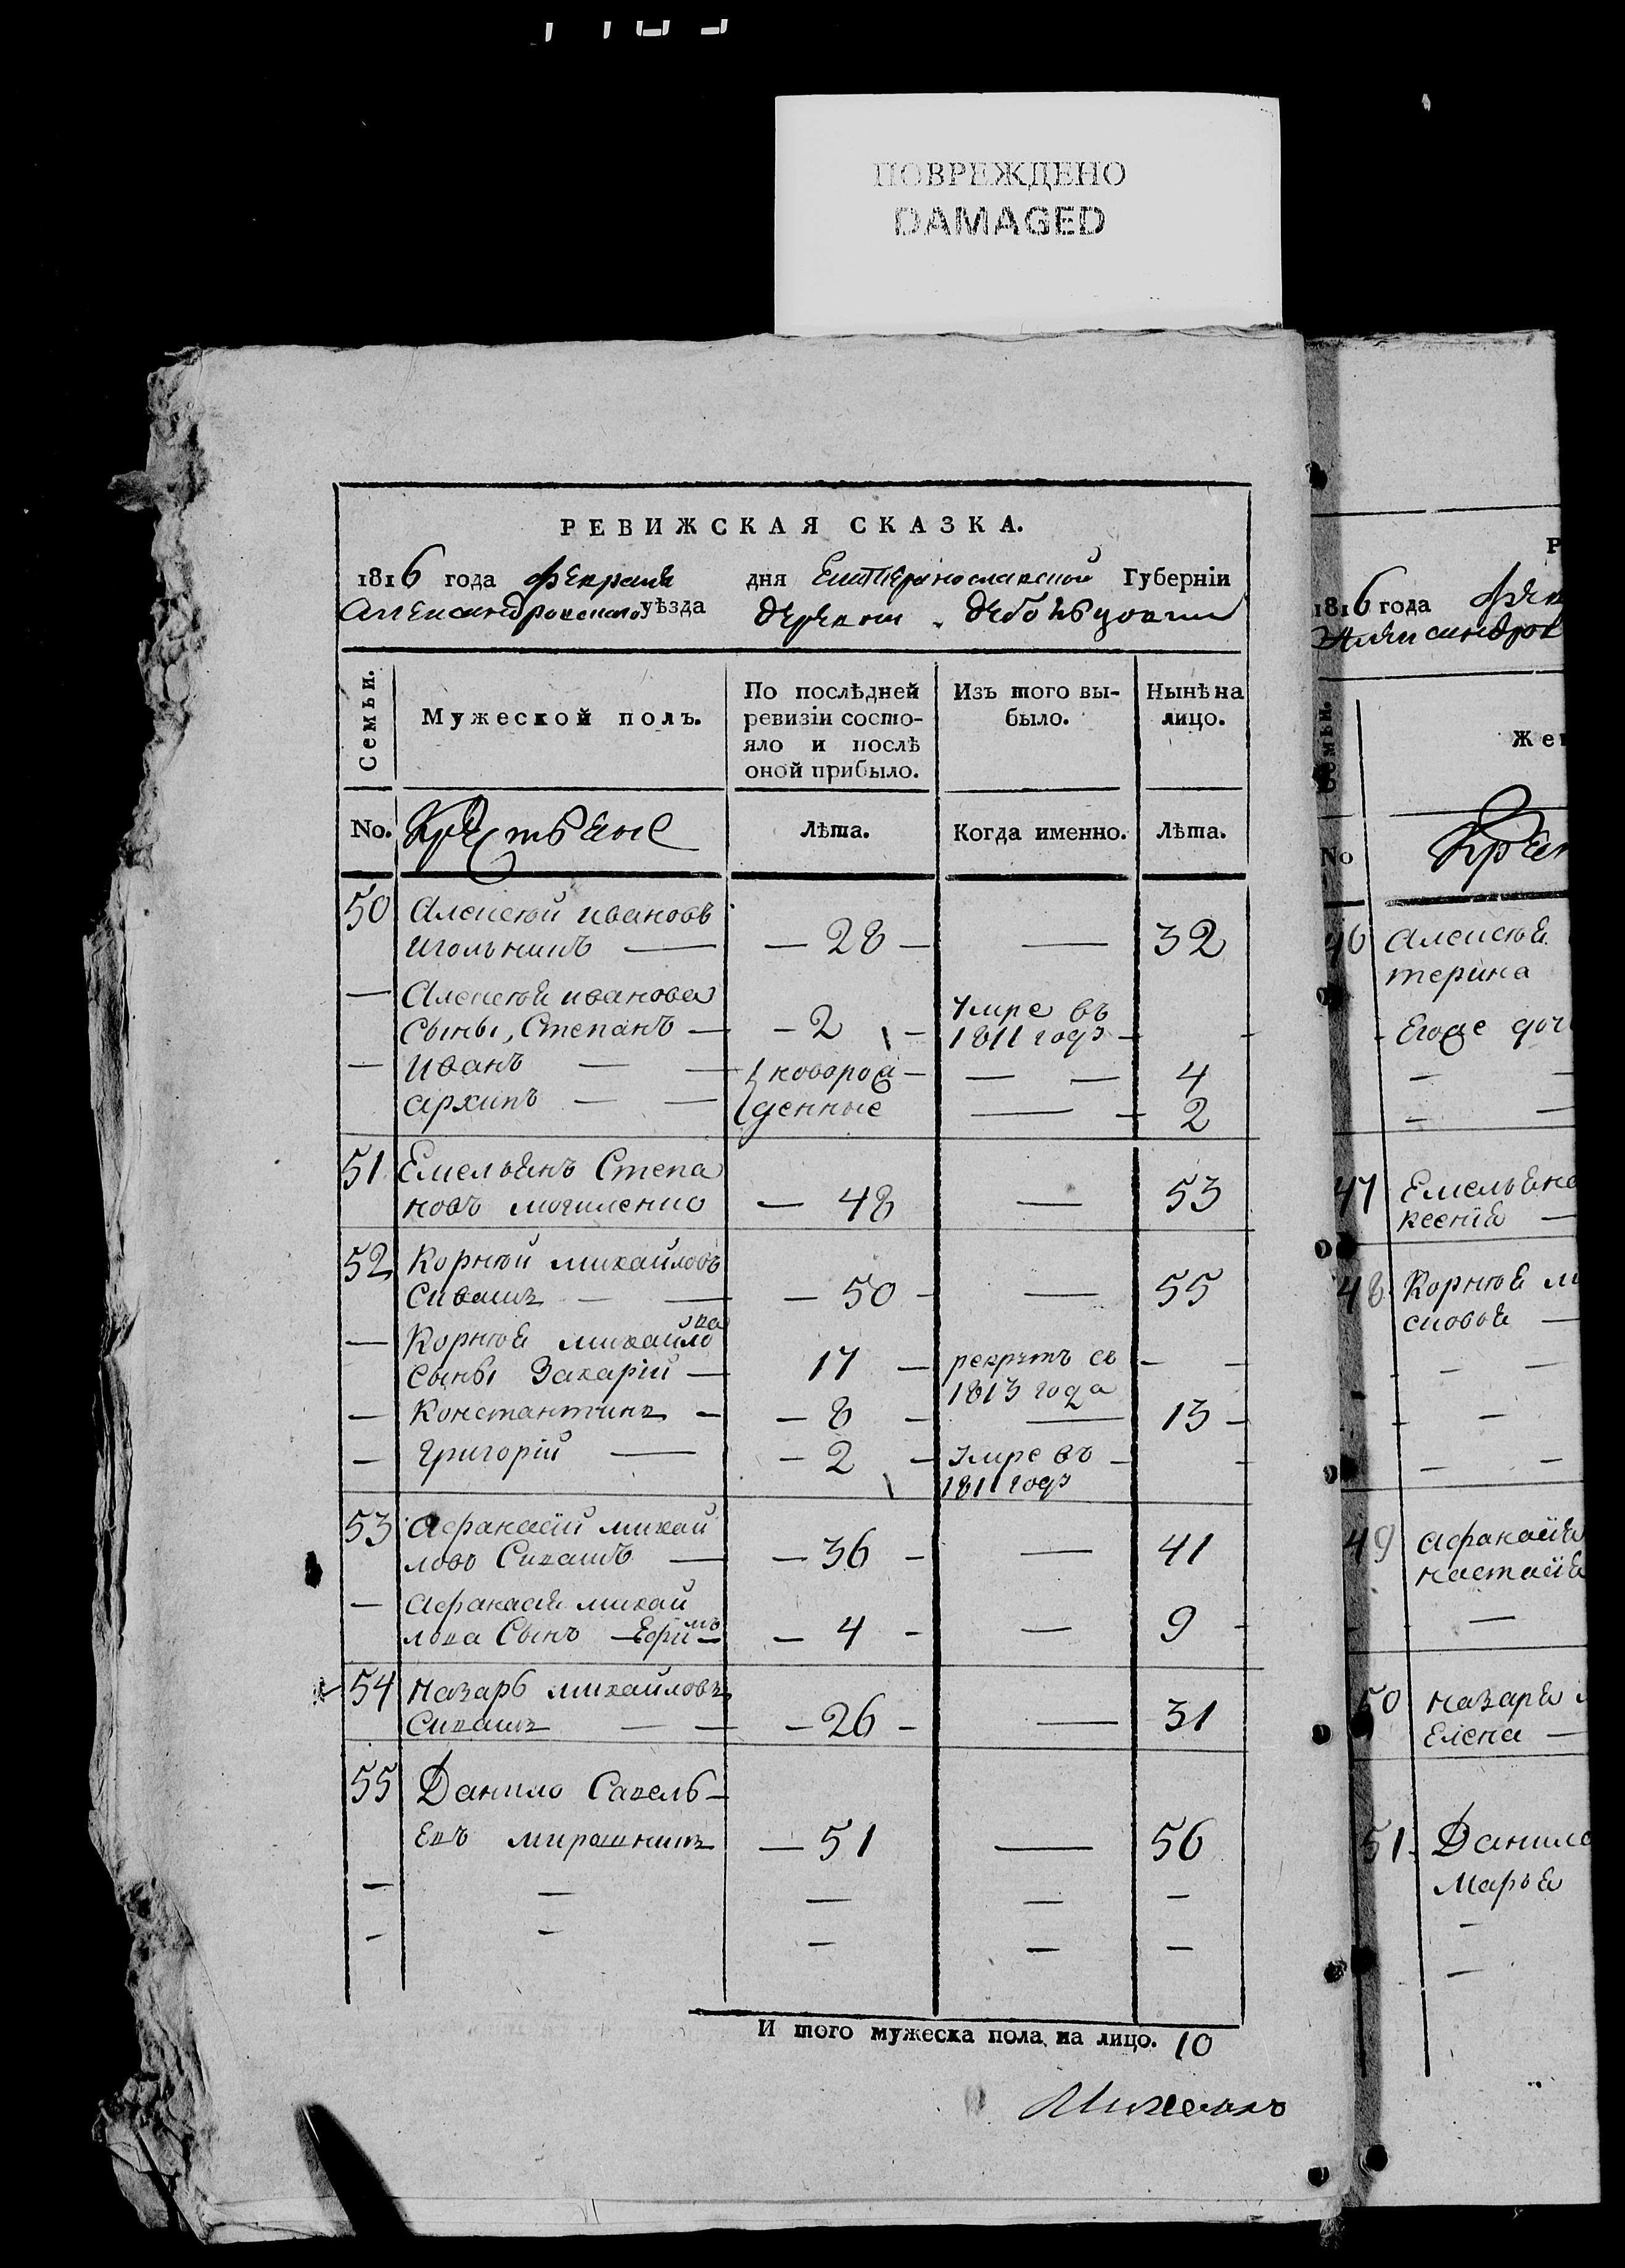 ПОВРЕЖДЕНО
DAMAGED
РЕВИЖСКАЯ СКАЗКА.
1816 года февраля дня Екатеринославской Губерніи
Александровского уѣзда деревни
Семьи.
Мужеской полъ.
По послѣдней ревизіи состояло и послѣ оной прибыло.
Изъ того выбыло.
Нынѣ на лицо.
No. Крестьяне Лѣта. Когда именно. Лѣта.
50 Алексѣй ивановъ
игольникъ — — 28 — — 32
— Алексѣя иванова
сыны, Степанъ — — 2 — умре въ 1811 годѣ —
— иванъ — — новорож — — — 4
архипъ — — денные — — 2
51 Емельянъ Степа
новъ могиленко — 48 — 53
52 Корнѣй михайловъ
Сивашъ — — — 50 — — 55
— Корнѣя михайлова
сыны Захарій — 17 — рекрутъ съ 1813 года — —
— Константинъ — — 8 — — 13 —
— Григорій — — 2 — умре въ 1811 годѣ — —
53 Афанасій михай
ловъ Сивашъ — — 36 — — 41
— Афанасія михай
лова Сынъ — Ефимъ — — 4 — — 9 —
54 Назаръ михайловъ
Сивашъ — — — 26 — — 31
55 Данило Савель —
евъ мирошникъ — 51 — 56
— — — — —
— — — — —
И того мужеска пола на лицо. 10
Р
1816 года фев
Александров
Семьи.
Жен
No Крес
46 Алексѣя
терина
- Егоже доч
— —
— —
47 Емельяна
ксенія —
48 Корнѣя ми
сковья —
— —
— —
— —
49 Афанасія
настасія
—
50 Назара м
Елена —
51. Данила
Марья
—
—